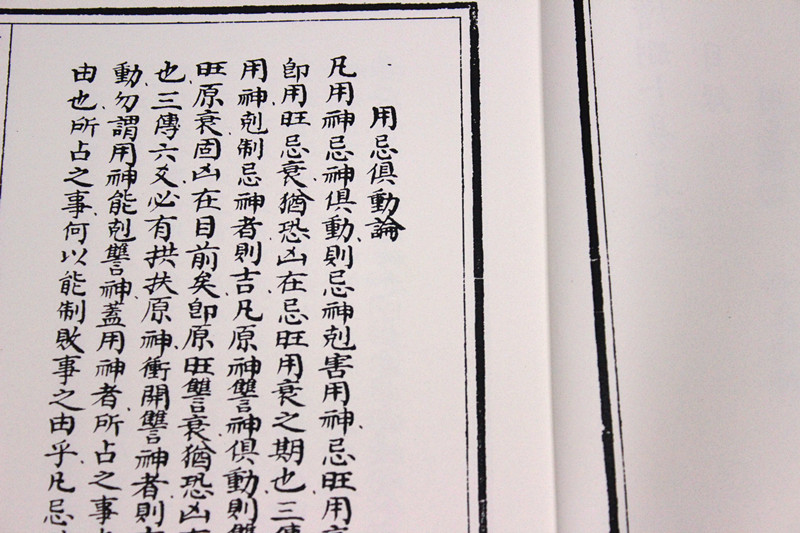 用忌俱動論
凡用神忌神俱動則忌神剋害用神忌旺用
即用旺忌衰猶恐凶在忌旺用衰之期也三傳
用神剋制忌神者則吉凡原神讐神俱動則
旺原衰固凶在目前矣即原旺讐衰猶恐凶
也三傳六爻必有拱扶原神衝開讐神者則
動勿謂用神能剋讐神蓋用神者所占之事
由也所占之事何以能制敗事之由乎凡忌